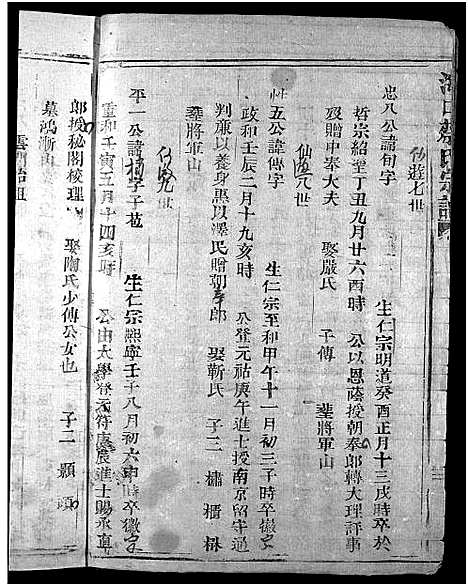 仙遊七世
忠八公諱旬字　生仁宗明道癸酉正月十三戌時卒於
哲宗紹聖丁丑九月廿六酉時　公以恩蔭授朝奉郎轉大理評事
歿贈中奉大夫　娶嚴氏　子傳　塟將軍山
仙遊八世
卅五公諱傳字　生仁宗至和甲午十一月初三子時卒徽宗
政和壬辰二月十九亥時　公登元祐庚午進士授南京留守通
判廉以養身惠以澤民贈朝奉郎　娶靳氏　子三　橚　楷　楙
塟將軍山
仙遊九世
平一公諱楠字子苞　生仁宗熙寧壬子八月初六申時卒徽宗
重和壬寅五月十四亥時　公由太學登元符庚辰進士賜承直
郎授秘閣校理　娶陶氏少傳公女也　子二　顯　頭
墓鴻漸山
雲門始祖